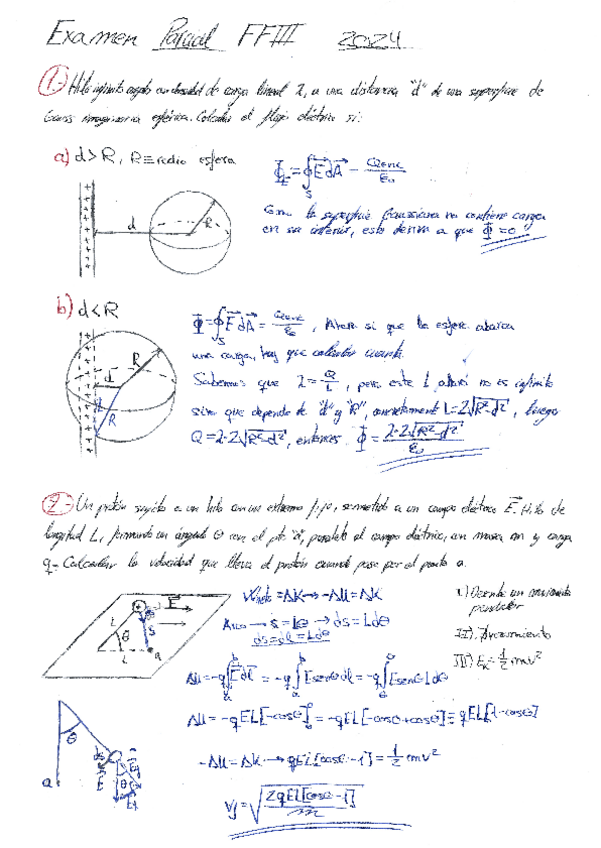 Examen Parcial FFIII 2024
1.- Hilo infinito cargado con densidad de carga lineal λ, a una distancia "d" de una superficie de
Gauss imaginaria esférica. Calcular el flujo eléctrico si:
a) d>R, R≡radio esfera
Φ_E = ∮_S E⃗ dA⃗ = Q_enc/ε₀
Como la superficie gaussiana no contiene carga
en su interior, esto deriva a que Φ=0
d
R
b) d<R
Φ = ∮_S E⃗ dA⃗ = Q_enc/ε₀, Ahora si que la esfera abarca
una carga, hay que calcular cuanta.
Sabemos que λ = Q/L, pero este L ahora no es infinito
sino que depende de "d" y "R", concretamente L=2√(R²-d²), luego
Q=λ·2√(R²-d²), entonces Φ = λ·2√(R²-d²)/ε₀
R
d
R
2.- Un protón sujeto a un hilo con un extremo fijo, sometido a un campo eléctrico E⃗. Hilo de
longitud L, formando un ángulo θ con el pto "a", paralelo al campo eléctrico, con masa m y carga
q. Calcular la velocidad que lleva el protón cuando pase por el punto a.
E⃗
L
θ
s
L
a
Wneto = ΔK → -ΔU = ΔK
Arco → s = Lθ → ds = Ldθ
ds = dl = Ldθ
I) Describe un movimiento
pendular
II)
III) Ek = ½mv²
ΔU = -q∫E⃗dl⃗ = -q∫Esenθdl = -q∫EsenθLdθ
ΔU = -qEL[-cosθ] = -qEL[-cos0+cosθ] = qEL[1-cosθ]
-ΔU = ΔK → qEL[cosθ-1] = ½mv²
v = √(2qEL[cosθ-1]/m)
θ
a
ds
E
θ